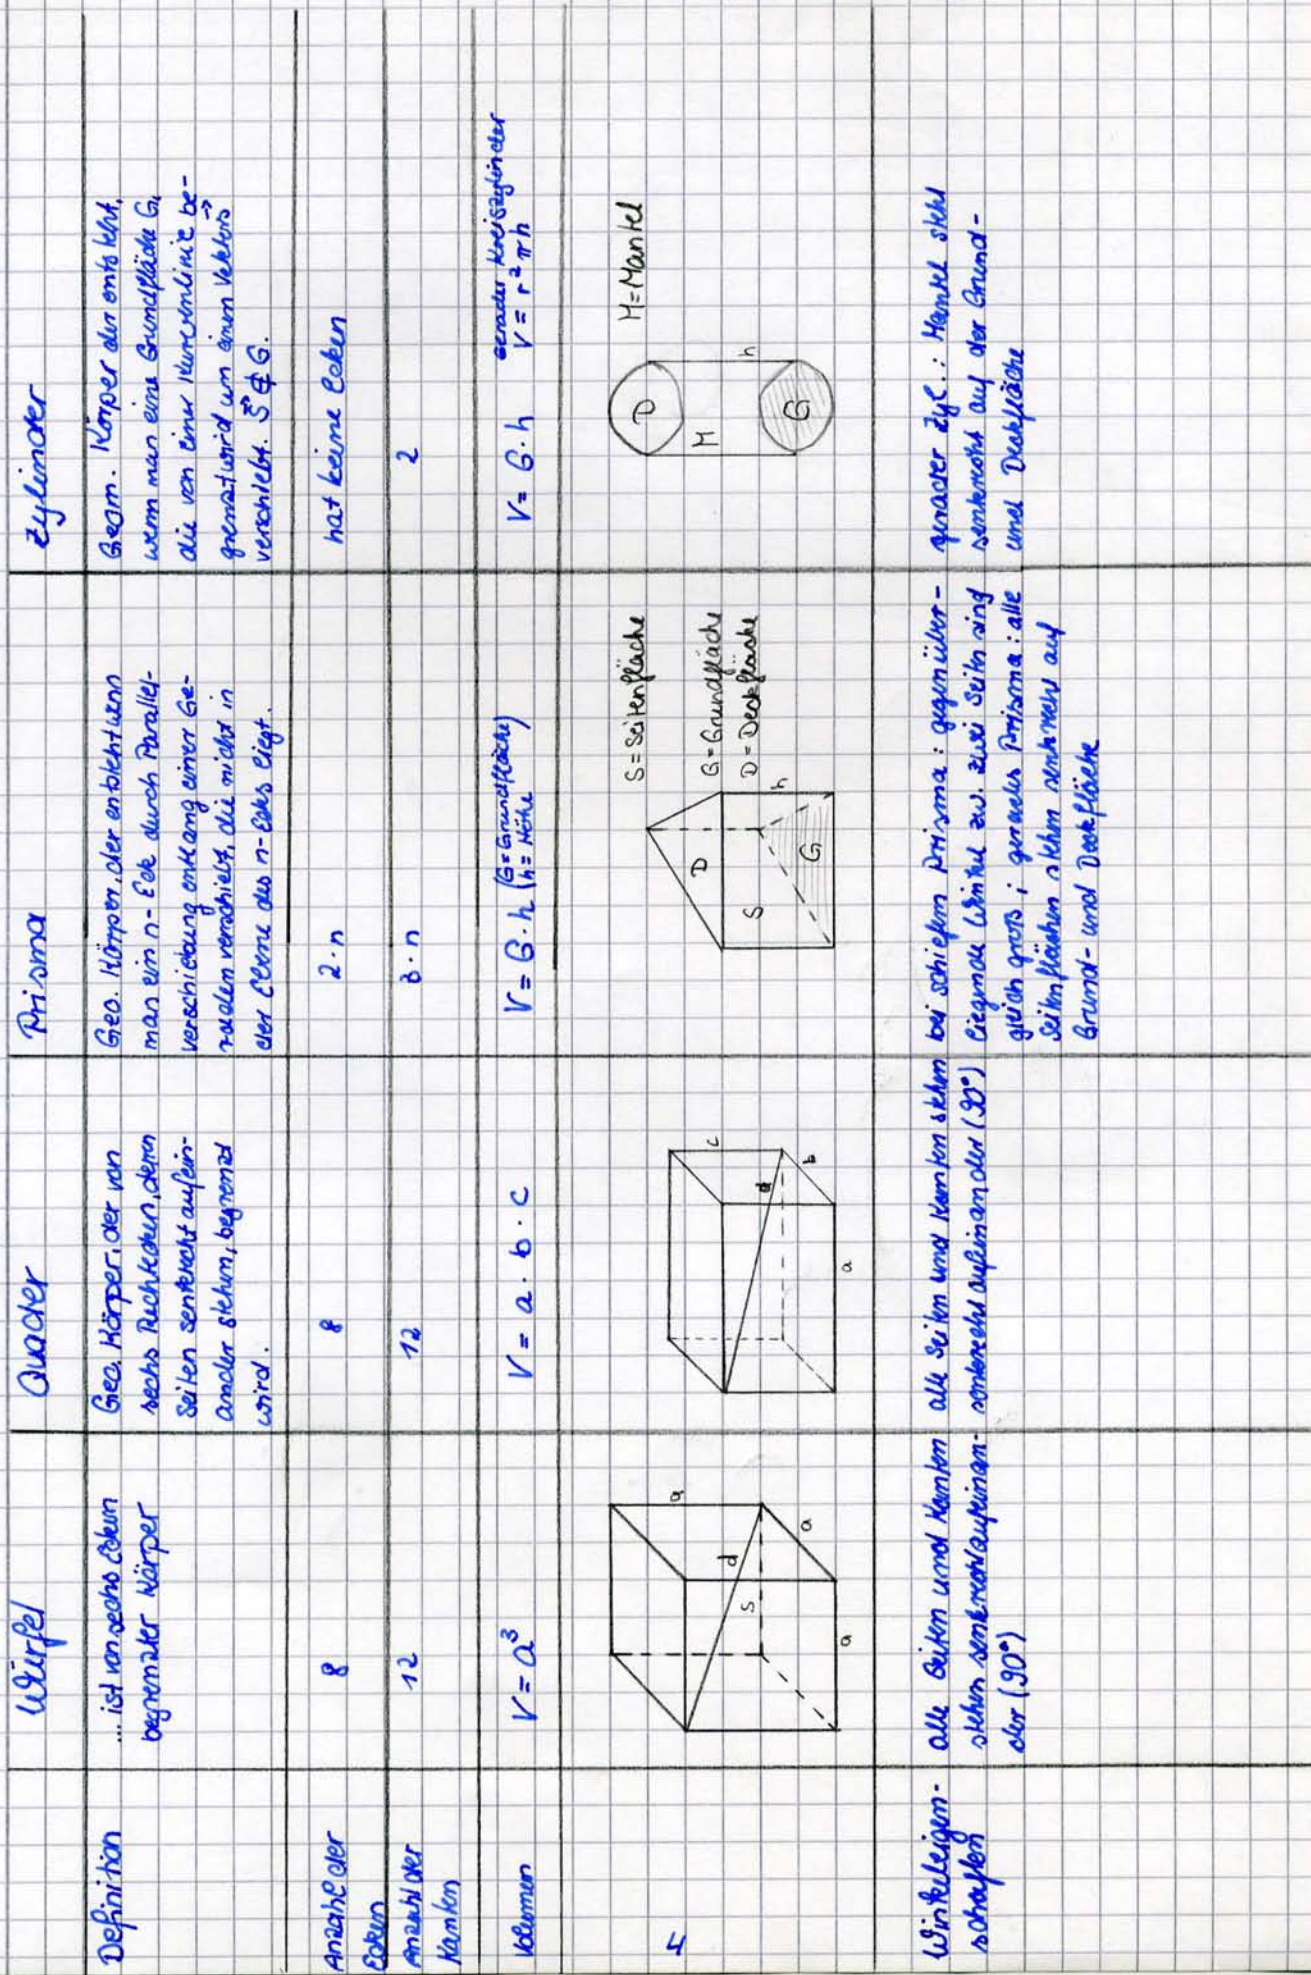 Würfel
Quader
Prisma
Zylinder
Definition
... ist von sechs Ecken
begrenzter Körper
Geo. Körper, der von
sechs Rechtecken, deren
Seiten senkrecht aufein-
ander stehen, begrenzt
wird.
Geo. Körper, der entsteht wenn
man ein n-Eck durch Parallel-
verschiebung entlang einer Ge-
raden verschiebt, die nicht in
der Ebene des n-Ecks liegt.
Geom. Körper der entsteht,
wenn man eine Grundfläche G,
die von einer Kurvenlinie be-
grenzt wird um einen Vektors
verschiebt. S ⊄ G.
Anzahl der
Ecken
8
8
2·n
hat keine Ecken
Anzahl der
Kanten
12
12
3·n
2
Volumen
V = a³
V = a · b · c
V = G · h (G = Grundfläche
h = Höhe)
V = G · h
gerader Kreiszylinder
V = r² π h
a
a
a
d
s
a
b
c
d
D
S
G
h
S = Seitenfläche
G = Grundfläche
D = Deckfläche
D
M
G
h
M = Mantel
Winkeleigen-
schaften
alle Seiten und Kanten
stehen senkrecht aufeinan-
der (90°)
alle Seiten und Kanten stehen
senkrecht aufeinander (90°)
bei schiefem Prisma: gegenüber-
liegende Winkel zw. zwei Seiten sind
gleich gross; gerades Prisma: alle
Seitenflächen stehen senkrecht auf
Grund- und Deckfläche
gerader Zyl.: Mantel steht
senkrecht auf der Grund-
und Deckfläche